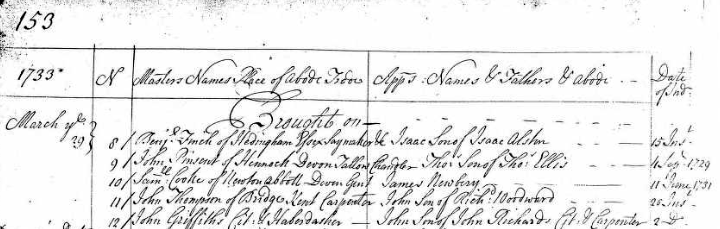 153
1733 N Masters Names Place of Abode Trade Apps: Names & Fathers & Abode Date of Ind:
Brought on
March ye 29
8 / Benj: Finch of Hedingham Essex Saymaker & Isaac Son of Isaac Alston 15 Inst
9 / John Pinsent of Hennock Devon Tallow Chandler Tho: Son of Tho: Ellis 4 1729
10 / Saml Cooke of Newton Abbott Devon Gent James Newbery 11 June 1731
11 / John Thompson of Bridge Kent Carpenter John Son of Richd: Woodward 20 Inst
12 / John Griffiths Cit: & Haberdasher John Son of John Richards Cit: & Carpenter 2 Do